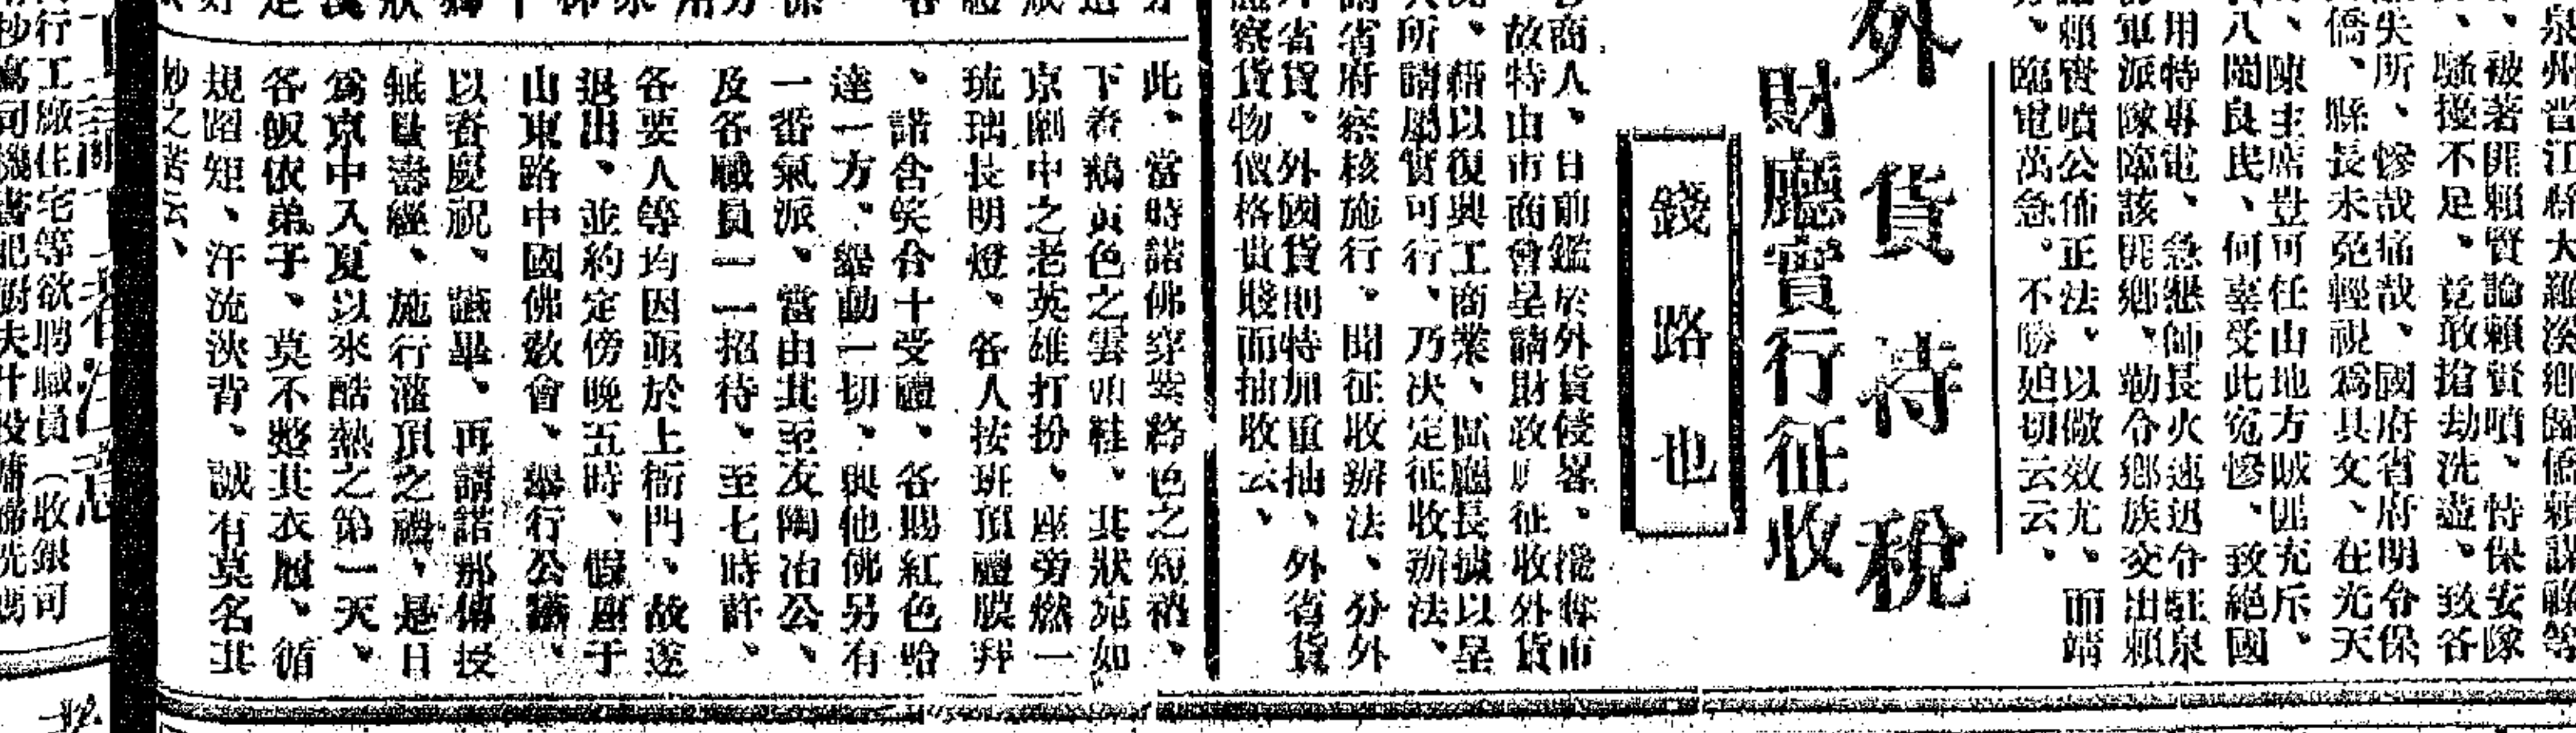 泉州晋江
、被著匪賴賢論賴賢噴、特保安隊
、騷擾不足、竟敢搶劫洗盪、致各
失所、慘哉痛哉、國府省府明令保
僑、縣長未免輕視爲具文、在光天
、陳主席豈可任山地方賊匪充斥、
八閩良民、何辜受此冤慘、致絕國
用特專電、急懇師長火速迅令駐泉
軍派隊臨該匪鄉、勒令鄉族交出賴
賴賢噴公佈正法、以儆效尤、而靖
、臨電萬急。不勝廹切云云、
外貨特稅
財廳實行征收
錢路也
商人、日前鑑於外貨侵畧、
故特由市商會呈請財政 征收外貨
、藉以復興工商業、 廳長據以呈
所請屬實可行、乃決定征收辦法、
省府察核施行、聞征收辦法、分外
省貨、外國貨則特加重抽、外省貨
察貨物價格貴賤而抽收云、
此、當時諾佛穿紫絳色之短褂、
下着鵝黃色之雲頭鞋、其狀宛如
京劇中之老英雄打扮、座旁燃一
琉璃長明燈、各人按班頂禮膜拜
、諾含笑合十受禮、各賜紅色哈
達一方、舉動一切、與他佛另有
一番氣派、當由其至友陶冶公、
及各職員一一招待、至七時許、
各要人等均因亟於上衙門、故遂
退出、並約定傍晚五時、假座于
山東路中國佛教會、舉行公讌、
以資慶祝、讌畢、再請諾那傳授
無量壽經、施行灌頂之禮、是日
爲京中入夏以來酷熱之第一天、
各皈依弟子、莫不整其衣履、循
規蹈矩、汗流浹背、誠有莫名其
妙之苦云、
行工廠住宅等欲聘職員（收銀司